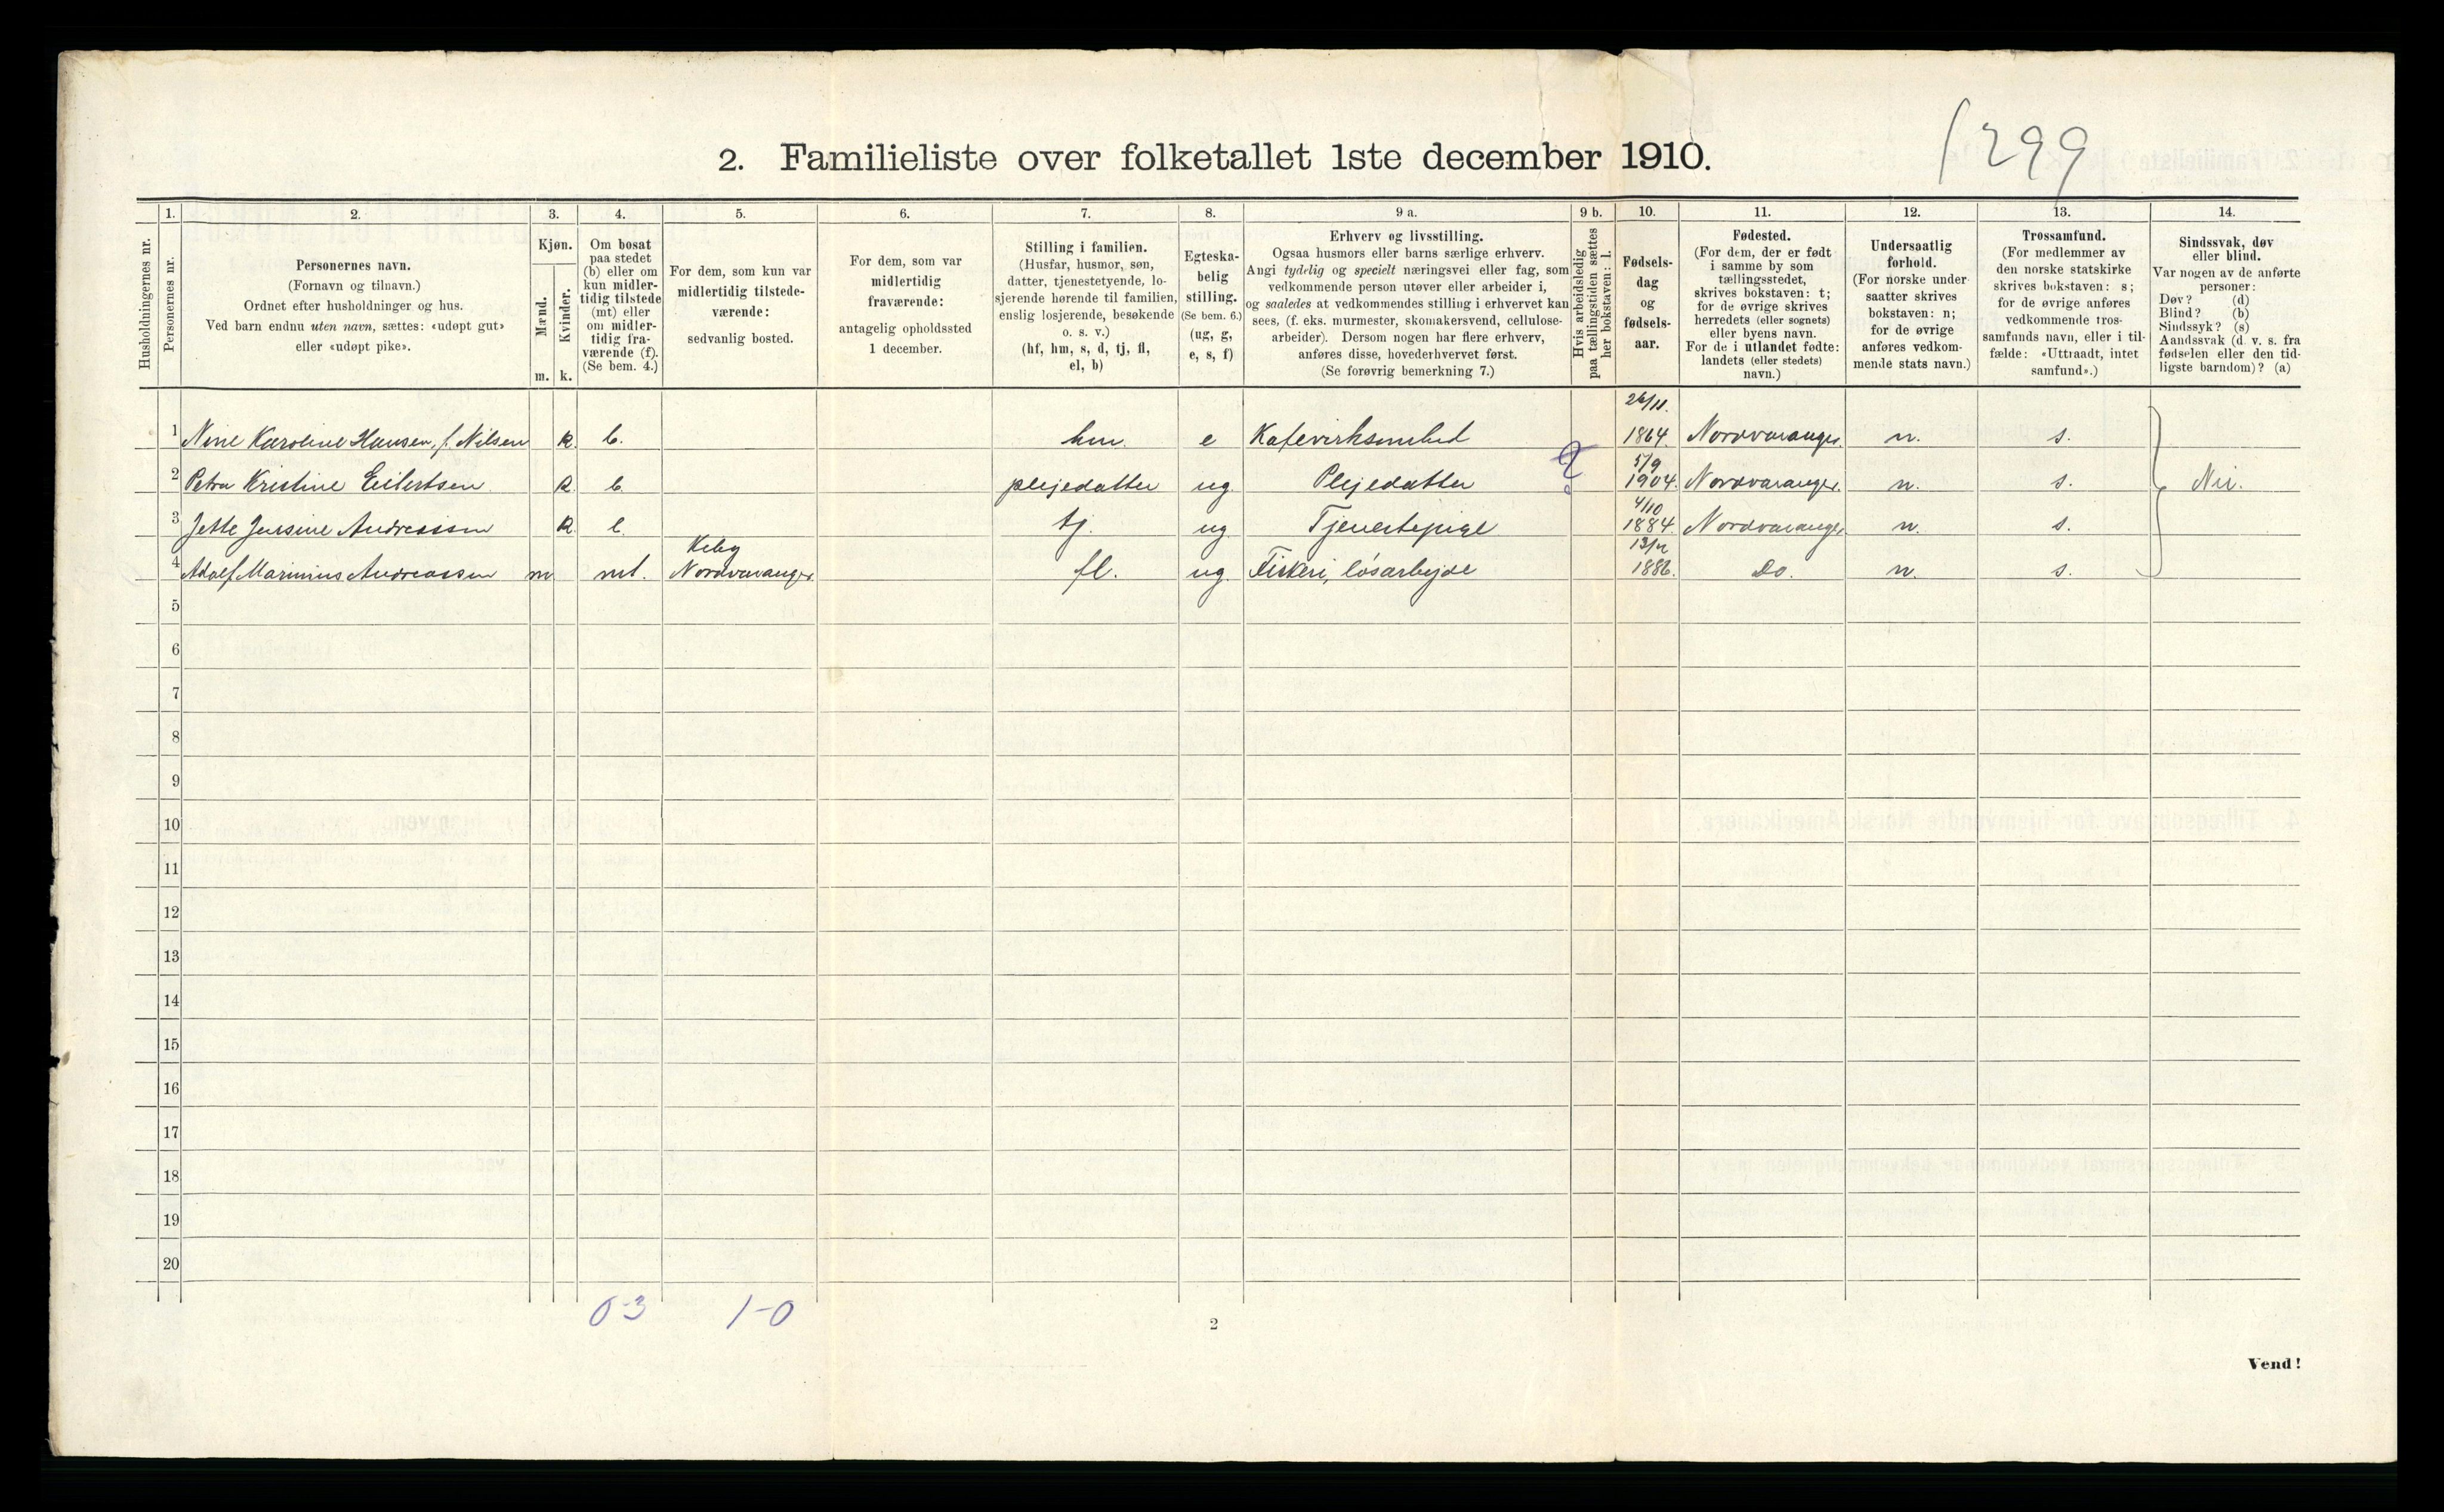 1299
2. Familieliste over folketallet 1ste december 1910.
1. 2. 3. 4. 5. 6. 7. 8. 9 a. 9 b. 10. 11. 12. 13. 14.
Husholdningernes nr.
Personernes nr.
Personernes navn.
(Fornavn og tilnavn.)
Ordnet efter husholdninger og hus.
Ved barn endnu uten navn, sættes: «udøpt gut»
eller «udøpt pike».
Kjøn.
Mænd.
Kvinder.
m. k.
Om bosat
paa stedet
(b) eller om
kun midler-
tidig tilstede
(mt) eller
om midler-
tidig fra-
værende (f).
(Se bem. 4.)
For dem, som kun var
midlertidig tilstede-
værende:
sedvanlig bosted.
For dem, som var
midlertidig
fraværende:
antagelig opholdssted
1 december.
Stilling i familien.
(Husfar, husmor, søn,
datter, tjenestetyende, lo-
sjerende hørende til familien,
enslig losjerende, besøkende
o. s. v.)
(hf, hm, s, d, tj, fl,
el, b)
Egteska-
belig
stilling.
(Se bem. 6.)
(ug, g,
e, s, f)
Erhverv og livsstilling.
Ogsaa husmors eller barns særlige erhverv.
Angi tydelig og specielt næringsvei eller fag, som
vedkommende person utøver eller arbeider i,
og saaledes at vedkommendes stilling i erhvervet kan
sees, (f. eks. murmester, skomakersvend, cellulose-
arbeider). Dersom nogen har flere erhverv,
anføres disse, hovederhvervet først.
(Se forøvrig bemerkning 7.)
Hvis arbeidsledig
paa tællingstiden sættes
her bokstaven: l.
Fødsels-
dag
og
fødsels-
aar.
Fødested.
(For dem, der er født
i samme by som
tællingsstedet,
skrives bokstaven: t;
for de øvrige skrives
herredets (eller sognets)
eller byens navn.
For de i utlandet fødte:
landets (eller stedets)
navn.)
Undersaatlig
forhold.
(For norske under-
saatter skrives
bokstaven: n;
for de øvrige
anføres vedkom-
mende stats navn.)
Trossamfund.
(For medlemmer av
den norske statskirke
skrives bokstaven: s;
for de øvrige anføres
vedkommende tros-
samfunds navn, eller i til-
fælde: «Uttraadt, intet
samfund».)
Sindssvak, døv
eller blind.
Var nogen av de anførte
personer:
Døv? (d)
Blind? (b)
Sindssyk? (s)
Aandssvak (d. v. s. fra
fødselen eller den tid-
ligste barndom)? (a)
26/11.
1 Nine Karoline Hansen, f. Nilsen k. b. hm. e Kafevirksomhed 1864. Nordvaranger. n. s.
5/9
2 Petra Kristine Eilertsen k. b. plejedatter ug. Plejedatter 1904. Nordvaranger. n. s. Nei.
4/10
3 Jette Jensine Andreassen k. b. tj. ug. Tjenestepige 1884. Nordvaranger. n. s.
Kiby
4 Adolf Marinius Andreassen m mt. Nordvaranger. fl. ug. Fiskeri, løsarbejde 1886. Do. n. s.
5
6
7
8
9
10
11
12
13
14
15
16
17
18
19
20
0-3 1-0
2
Vend!